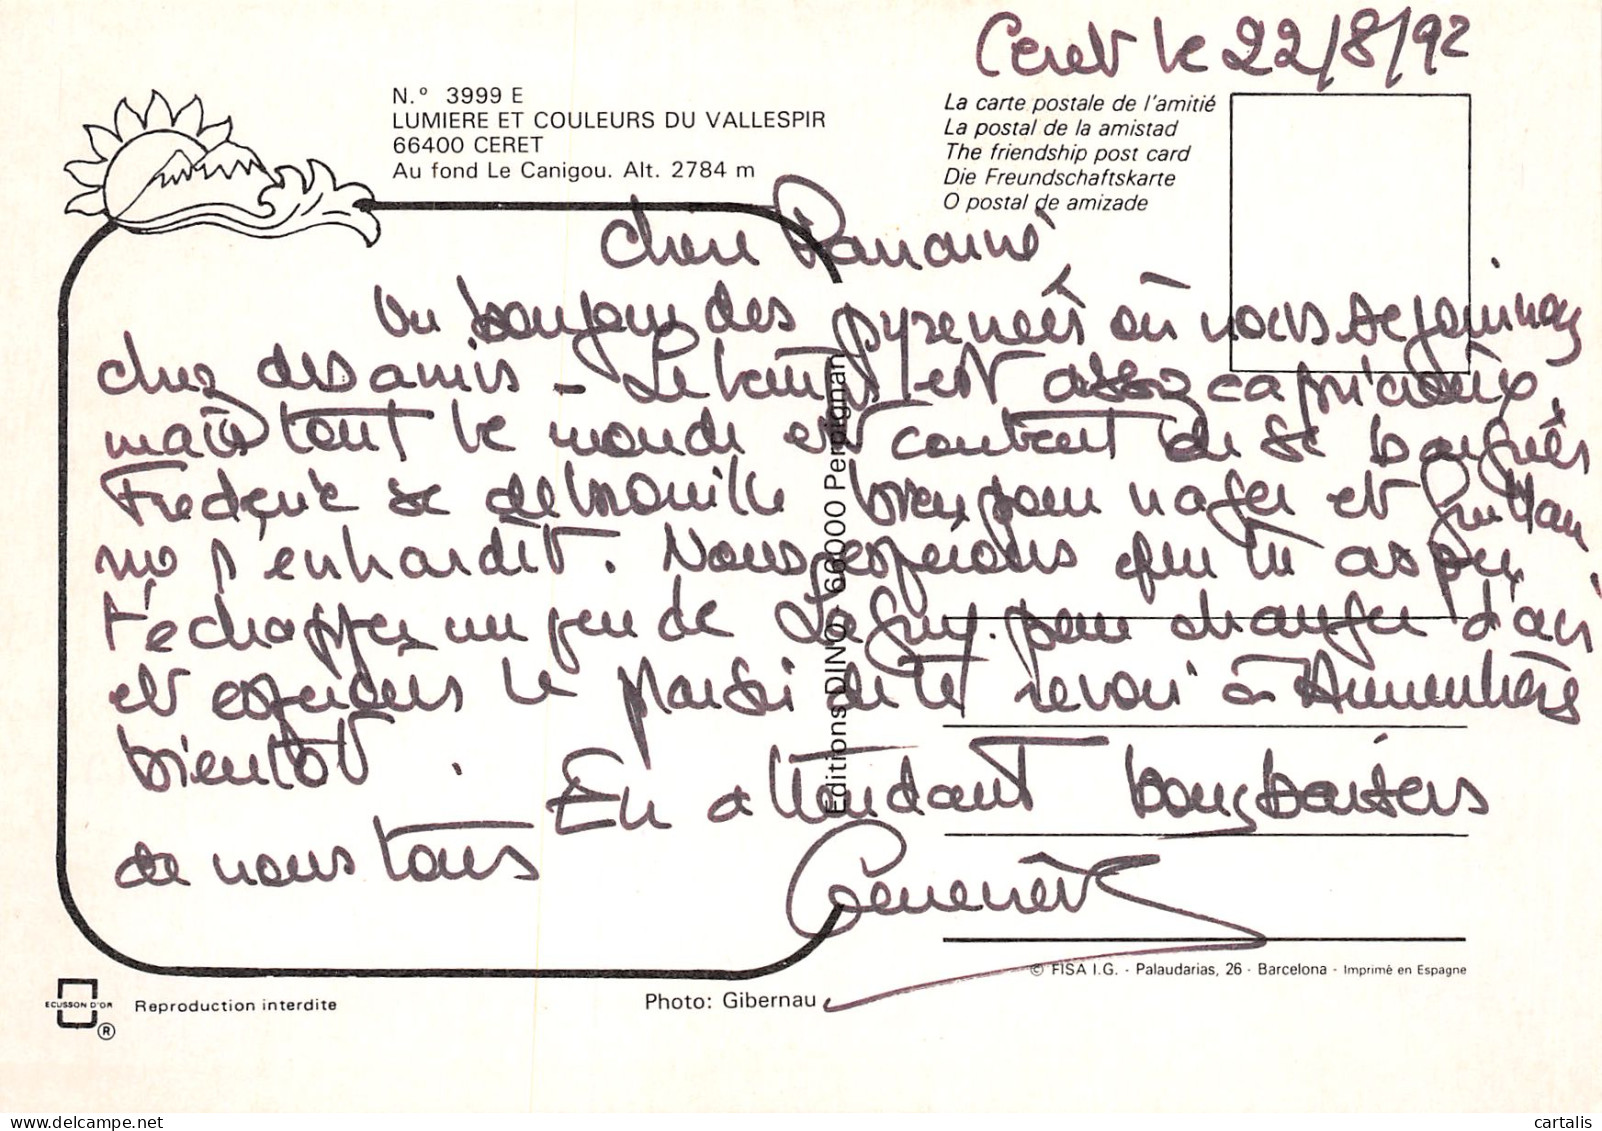 Ceret le 22/8/92
N.º 3999 E
LUMIERE ET COULEURS DU VALLESPIR
66400 CERET
Au fond Le Canigou. Alt. 2784 m
La carte postale de l'amitié
La postal de la amistad
The friendship post card
Die Freundschaftskarte
O postal de amizade
Chere
Un bonjour des pyrenées où nous sejournons
chez des amis - Le temps est assez capricieux,
mais tout le monde est content de se baigner
Frederic se debrouille bien pour nager et
s'enhardit. Nous esperons que tu as pu
t'echapper un peu de pour changer d'air
et esperons le plaisir de te revoir à Armentières
bientôt. En attendant bons baisers
de nous tous
Editions DINO 66000 Perpignan
© FISA I.G. - Palaudarias, 26 - Barcelona - Imprimé en Espagne
ECUSSON D'OR
®
Reproduction interdite
Photo: Gibernau
cartalis